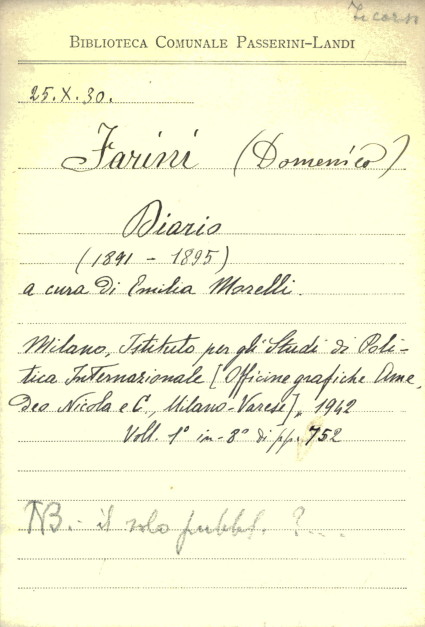 In corso
BIBLIOTECA COMUNALE PASSERINI-LANDI
25.X.30.
Farini (Domenico)
Diario
(1891 - 1895)
a cura di Emilia Morelli.
Milano, Istituto per gli Studi di Poli-
tica Internazionale [Officine grafiche Ame-
deo Nicola e C., Milano-Varese], 1942
Voll. 1° in-8° di pp. 752
NB.- il solo pubbl. ?...